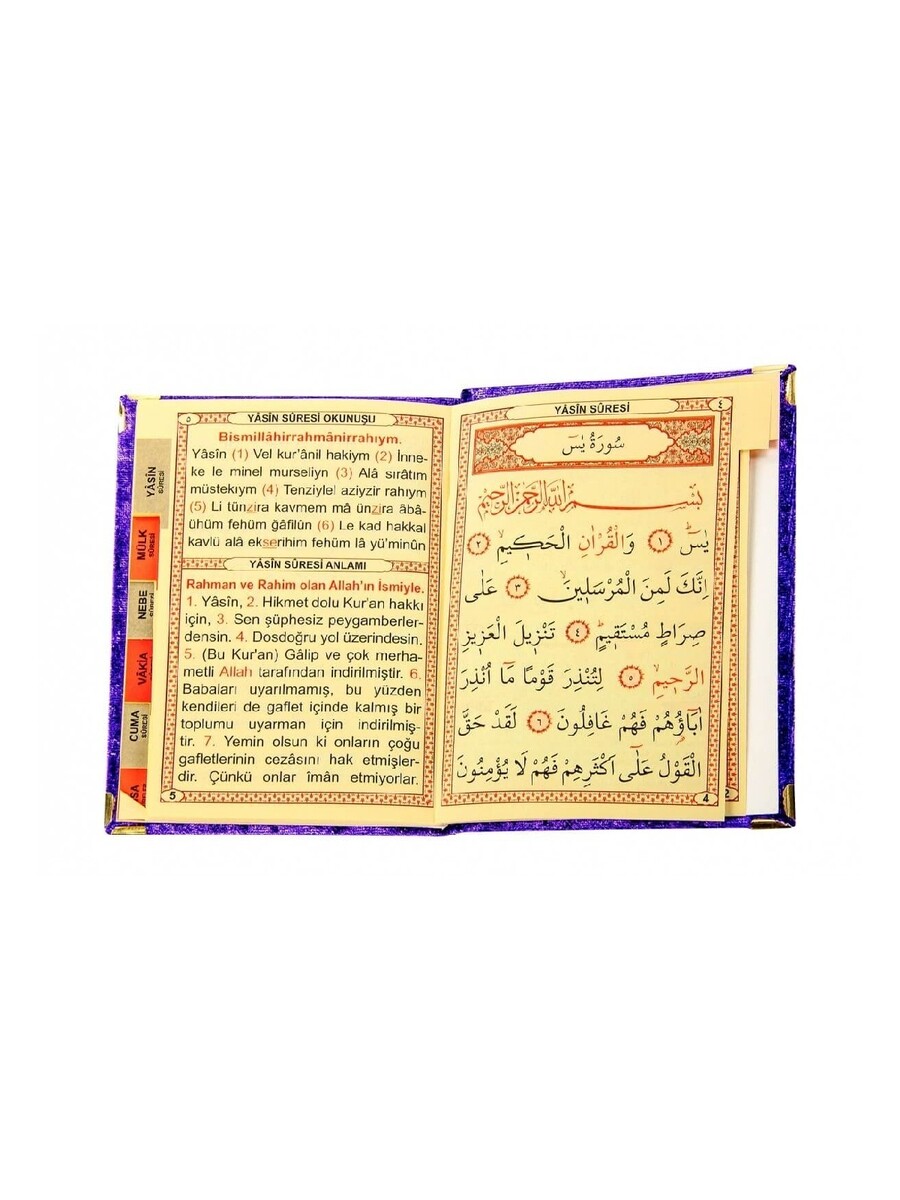 ٥
YÂSÎN SÛRESİ OKUNUŞU
Bismillâhirrahmânirrahıym.
Yâsîn (1) Vel kur'ânil hakiym (2) İnne-
ke le minel murseliyn (3) Alâ sırâtım
müstekıym (4) Tenziylel aziyzir rahıym
(5) Li tünzira kavmem mâ ünzira âbâ-
ühüm fehüm ğâfilûn (6) Le kad hakkal
kavlü alâ ekserihim fehüm lâ yü'minûn
YÂSÎN SÛRESİ ANLAMI
Rahman ve Rahim olan Allah'ın İsmiyle.
1. Yâsîn, 2. Hikmet dolu Kur'an hakkı
için, 3. Sen şüphesiz peygamberler-
densin. 4. Dosdoğru yol üzerindesin.
5. (Bu Kur'an) Gâlip ve çok merha-
metli Allah tarafından indirilmiştir. 6.
Babaları uyarılmamış, bu yüzden
kendileri de gaflet içinde kalmış bir
toplumu uyarman için indirilmiş-
tir. 7. Yemin olsun ki onların çoğu
gafletlerinin cezasını hak etmişler-
dir. Çünkü onlar îmân etmiyorlar.
5
YÂSÎN
SÛRESİ
MÜLK
SÛRESİ
NEBE
VÂKIA
CUMA
SÛRESİ
YÂSÎN SÛRESİ
٤
سُورَةُ يٰسٓ
بِسْمِ اللّٰهِ الرَّحْمٰنِ الرَّحِيمِ
يٰسٓ ۚ ١ وَالْقُرْاٰنِ الْحَك۪يمِۙ ٢
اِنَّكَ لَمِنَ الْمُرْسَل۪ينَۙ ٣ عَلٰى
صِرَاطٍ مُسْتَق۪يمٍۜ ٤ تَنْز۪يلَ الْعَز۪يزِ
الرَّح۪يمِۙ ٥ لِتُنْذِرَ قَوْمًا مَٓا اُنْذِرَ
اٰبَٓاؤُ۬هُمْ فَهُمْ غَافِلُونَ ٦ لَقَدْ حَقَّ
الْقَوْلُ عَلٰٓى اَكْثَرِهِمْ فَهُمْ لَا يُؤْمِنُونَ
4